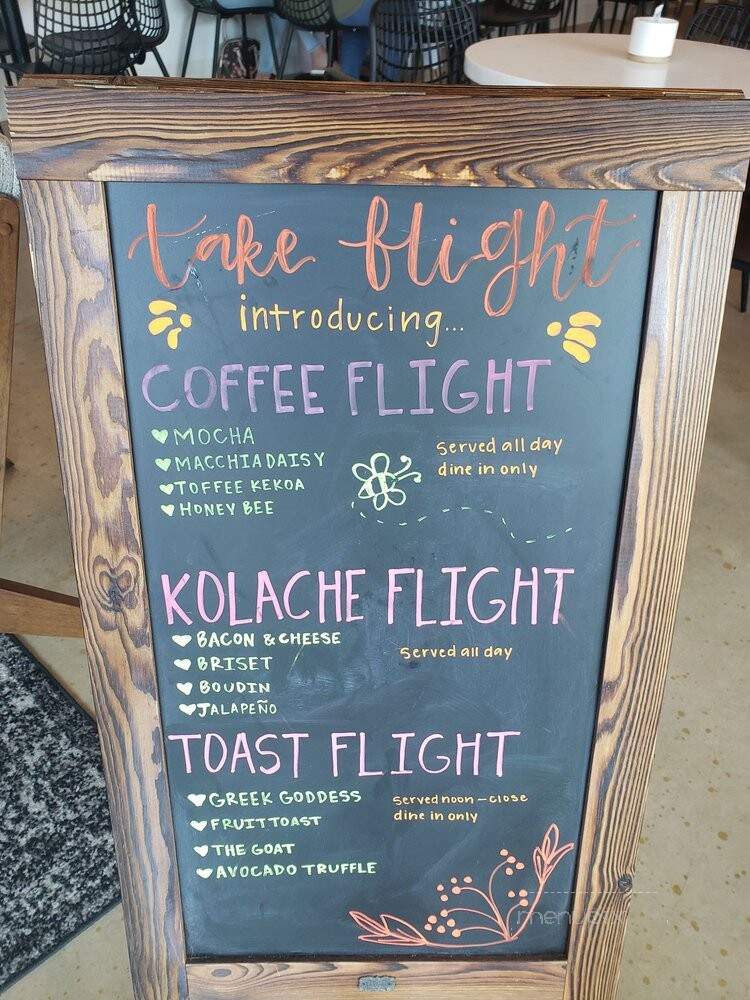 take flight
introducing...
COFFEE FLIGHT
MOCHA
MACCHIADAISY
TOFFEE KEKOA
HONEY BEE
Served all day
dine in only
KOLACHE FLIGHT
BACON & CHEESE
BRISET
BOUDIN
JALAPEÑO
Served all day
TOAST FLIGHT
GREEK GODDESS
FRUIT TOAST
THE GOAT
AVOCADO TRUFFLE
Served noon - close
dine in only